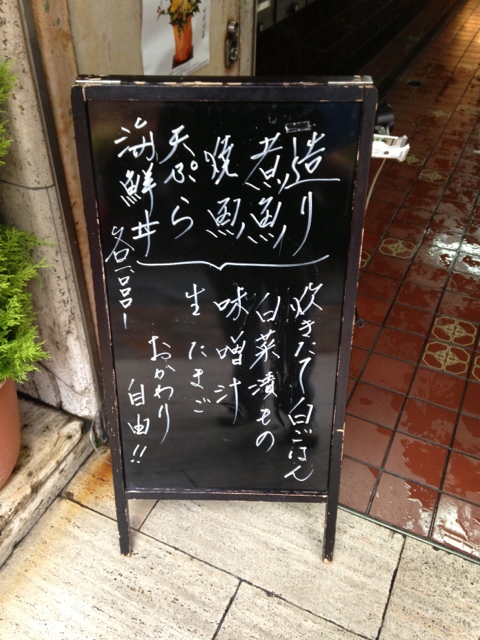 造り
煮魚
焼魚
天ぷら
海鮮丼
各一品
炊きたて白ごはん
白菜漬もの
味噌汁
生たまご
おかわり
自由!!